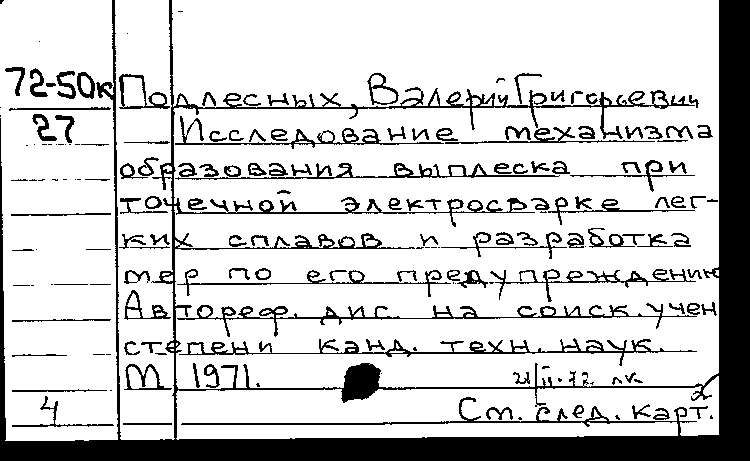 72-50к Подлесных, Валерий Григорьевич
27 Исследование механизма
образования выплеска при
точечной электросварке лег-
ких сплавов и разработка
мер по его предупреждению
Автореф. дис. на соиск. учен
степени канд. техн. наук.
М 1971.
21/II-72 лк
4 См. след. карт. 2